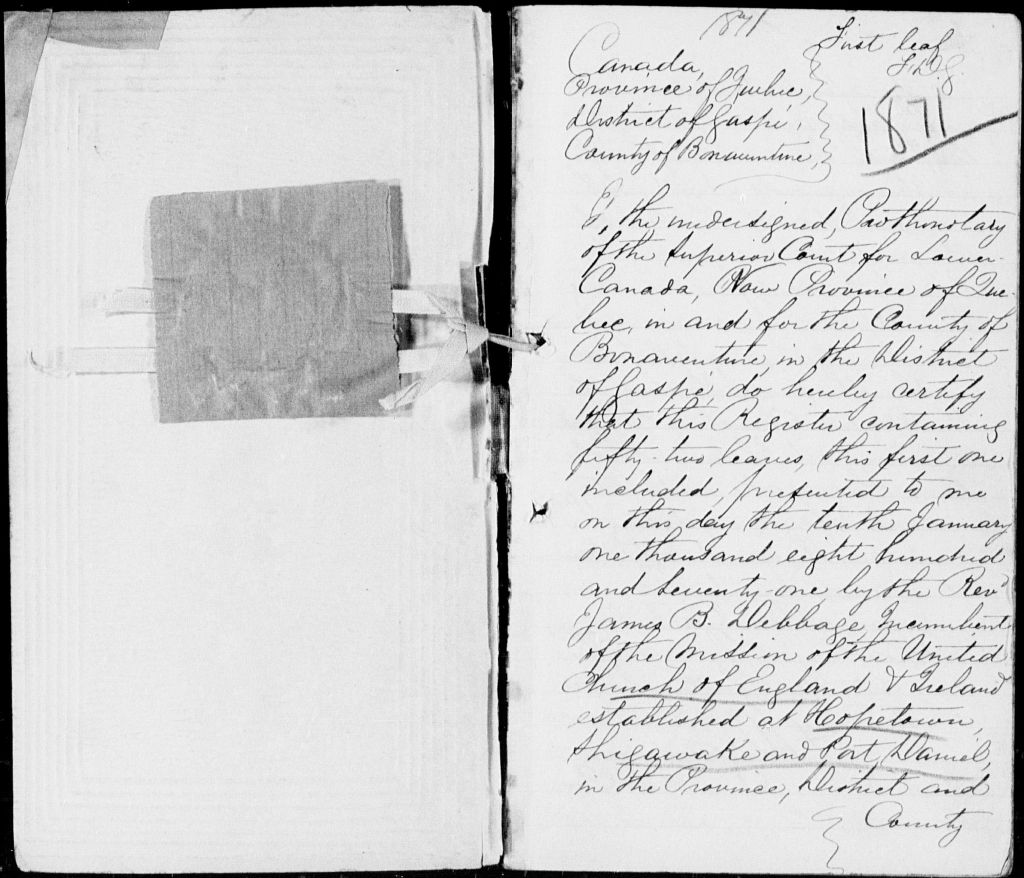 1871
First leaf
F.D.G.
1871
Canada,
Province of Quebec,
District of Gaspé,
County of Bonaventure,
I, the undersigned, Prothonotary
of the Superior Court for Lower-
Canada, Now Province of Que-
bec, in and for the County of
Bonaventure, in the District
of Gaspé, do hereby certify
that this Register containing
fifty-two leaves, this first one
included, presented to me
on this day the tenth January
one thousand eight hundred
and seventy-one by the Revd
James B. Debbage, Incumbent
of the Mission of the United
Church of England & Ireland
established at Hopetown,
Shigawake and Port Daniel,
in the Province, District and
County